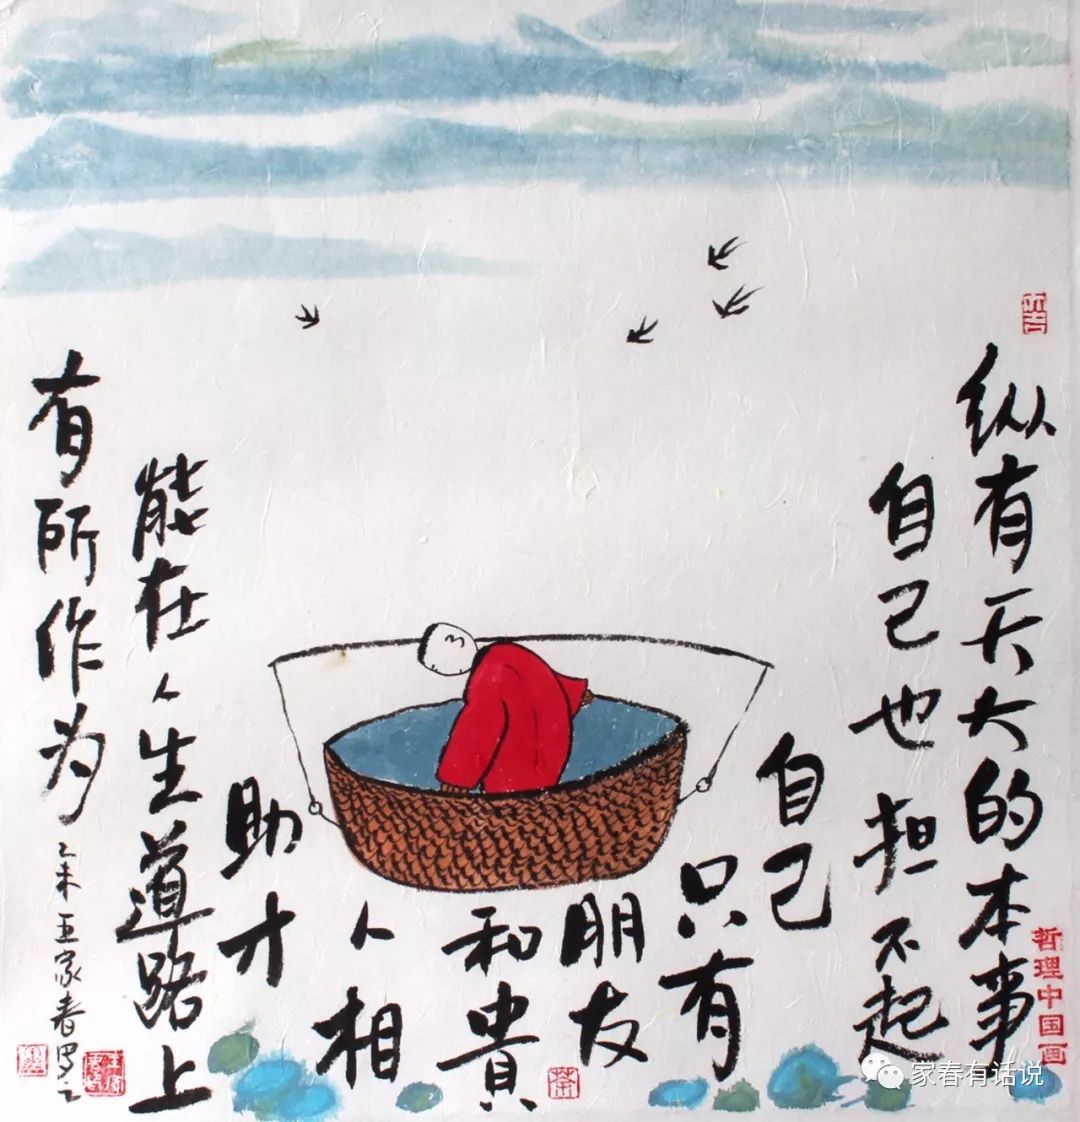 纵有天大的本事
自己也担不起
自己
只有
朋友
和貴
人相
助才
能在人生道路上
有所作为
乙未王家春写之
哲理中国画
茶
家春有话说